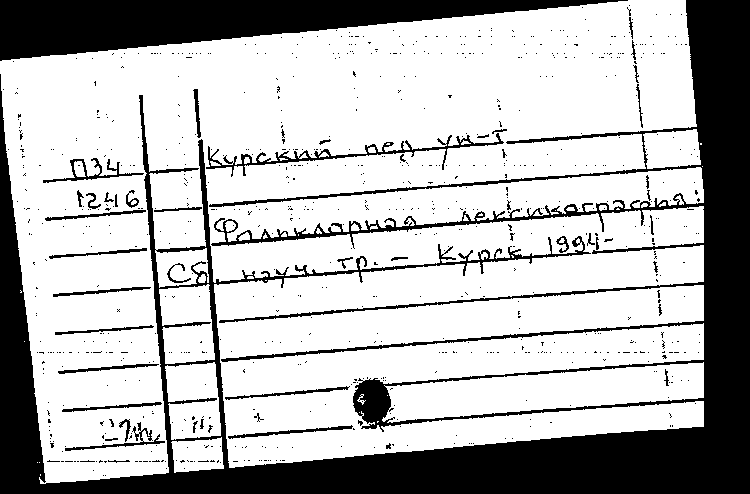 П34 Курский пед. ун-т
1246
Фольклорная лексикография:
Сб. науч. тр. – Курск, 1994-